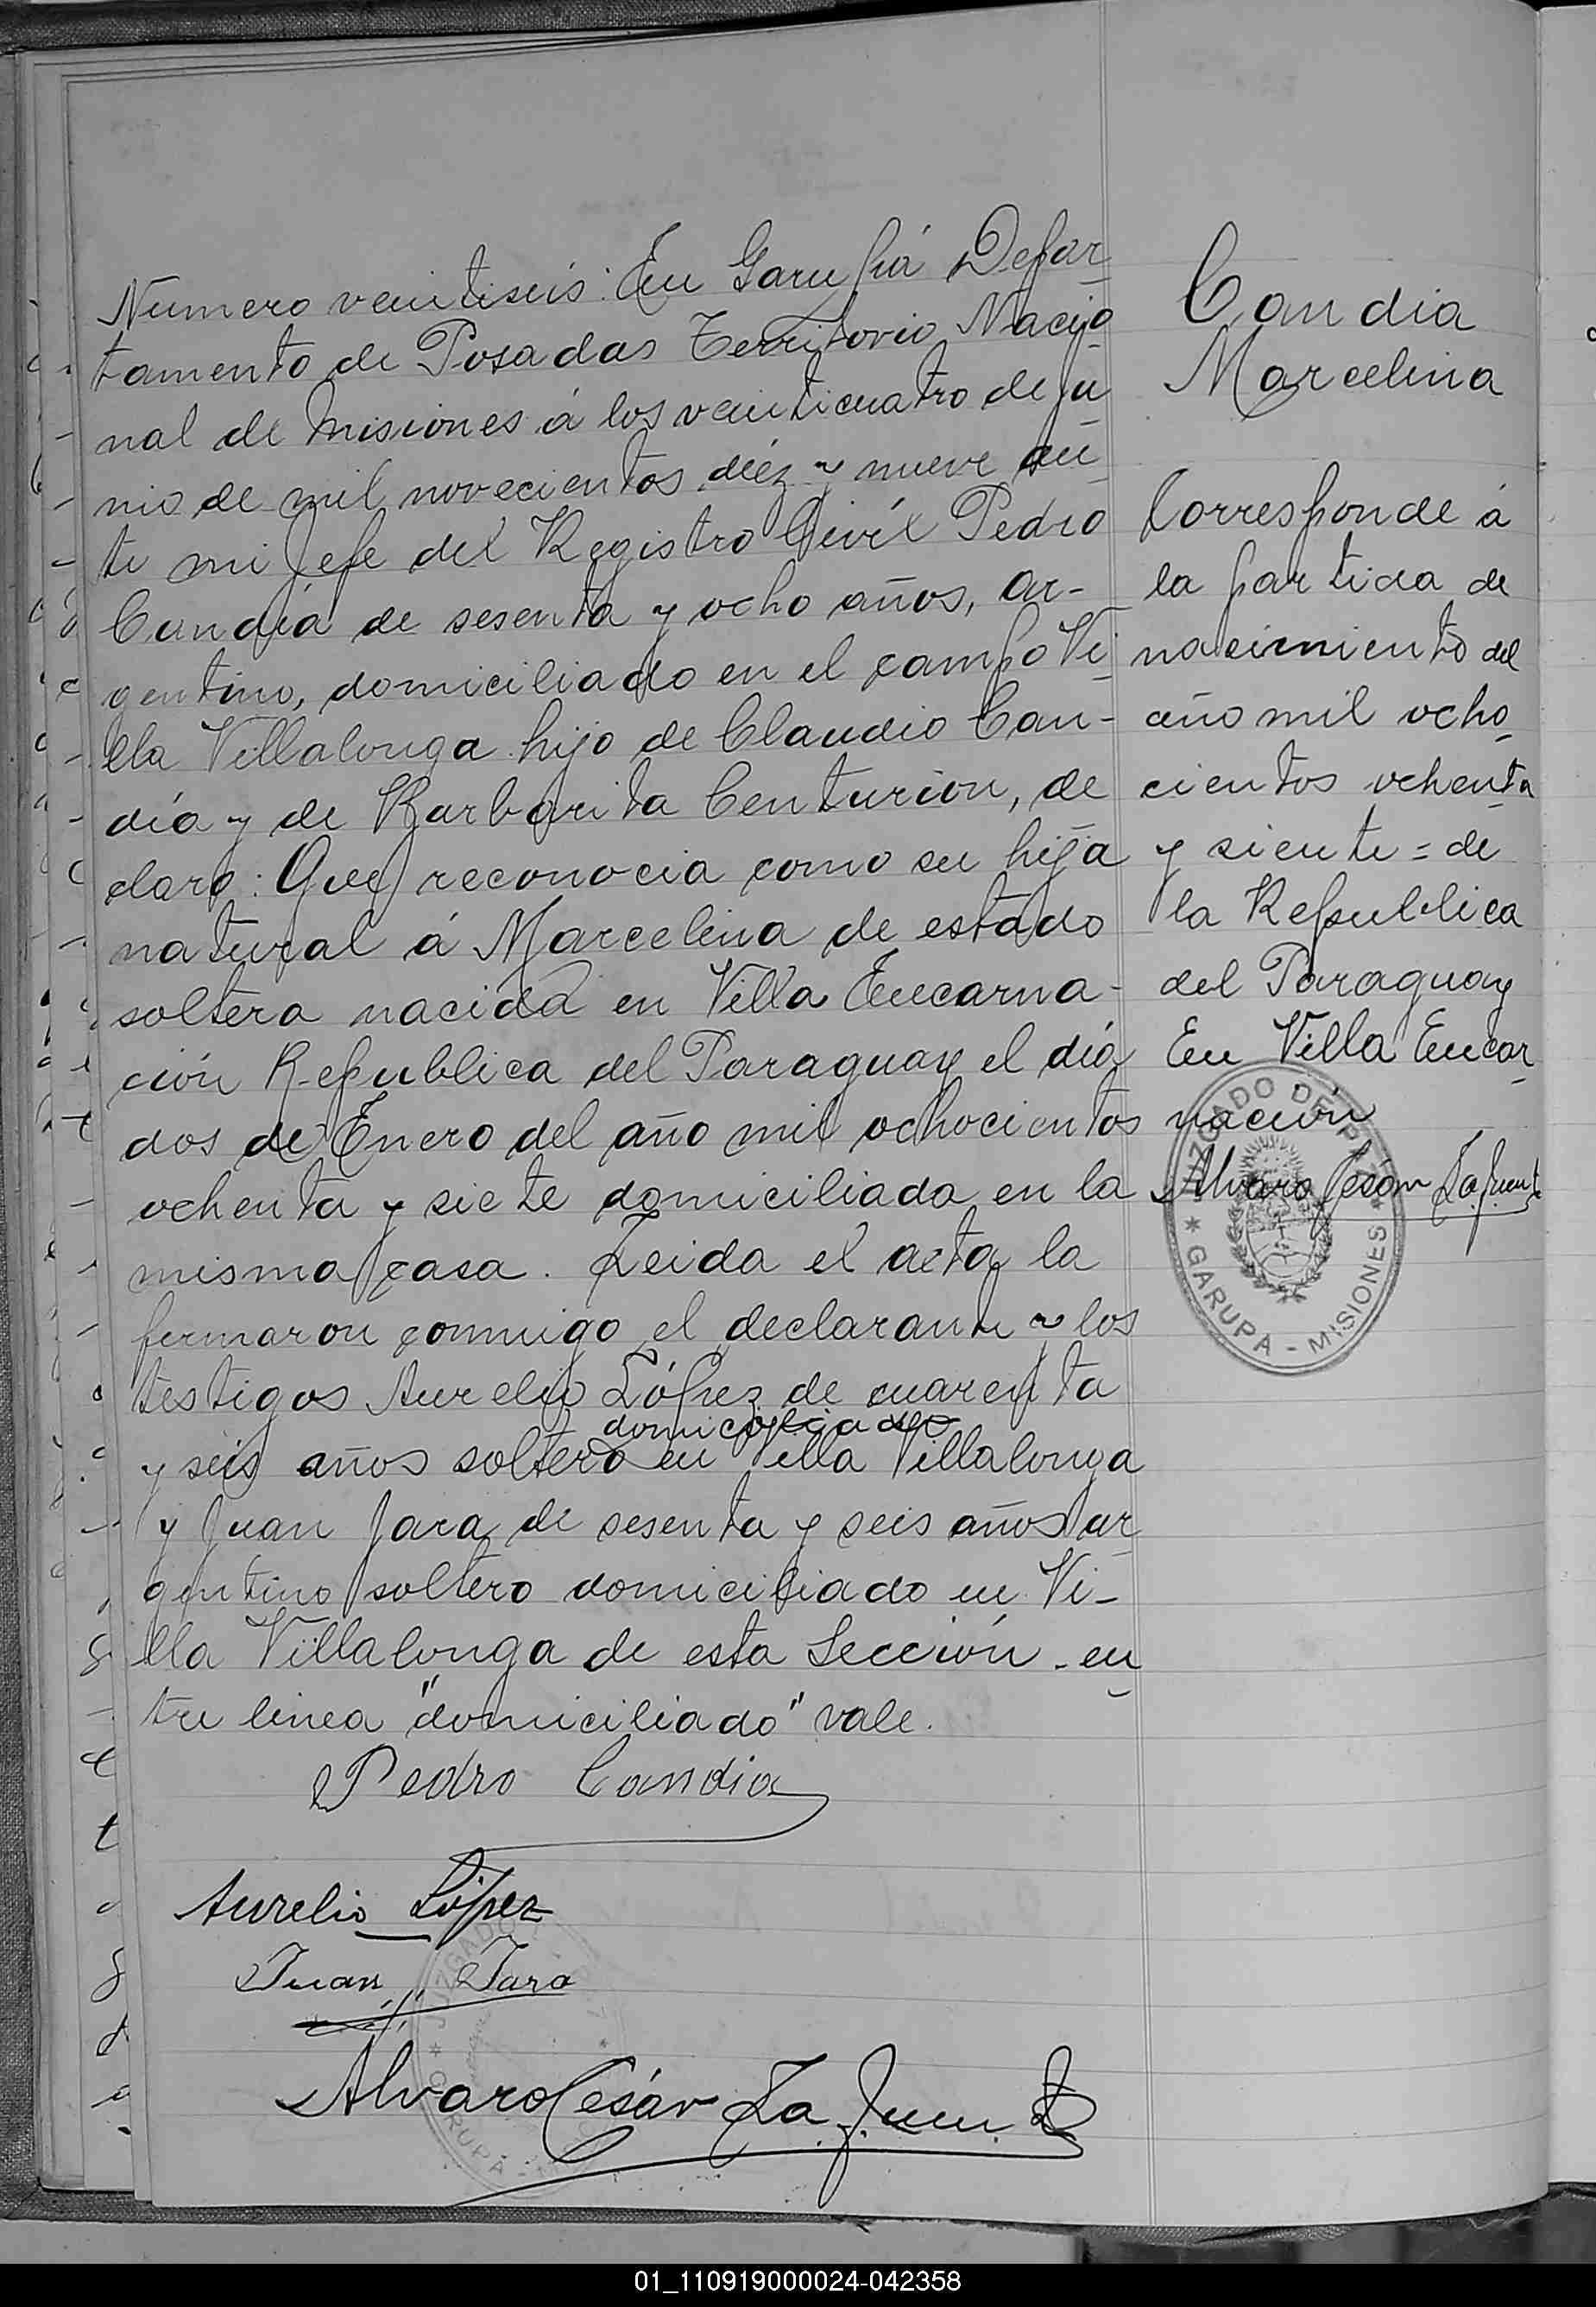 Numero veintiseis: En Garupá Depar-
tamento de Posadas Territorio Nacio-
nal de Misiones á los veinticuatro de ju
nio de mil novecientos diéz y nueve an-
te mi Jefe del Registro Civil Pedro
Candia de sesenta y ocho años, ar-
gentino, domiciliado en el campo Vi-
lla Villalonga hijo de Claudio Can-
día y de Barbarita Centurion, de
claro: Que reconocia como su hija
natural á Marcelina de estado
soltera nacida en Villa Encarna-
ción Republica del Paraguay el día
dos de Enero del año mil ochocientos
ochenta y siete domiciliada en la
misma casa. Leida el acta la
firmaron conmigo el declarante y los
testigos Aurelio López de cuarenta
domiciliado
y seis años soltero en Villa Villalonga
y Juan Jara de sesenta y seis años ar-
gentino soltero domiciliado en Vi-
lla Villalonga de esta Sección - en-
tre linea "domiciliado" vale.
Pedro Candia
Aurelio López
Juan Jara
Alvaro César Lafuente
Candia
Marcelina
Corresponde á
la partida de
nacimiento del
año mil ocho-
cientos ochenta
y siente = de
la Republica
del Paraguay
En Villa Encar-
nación
Alvaro César Lafuente
JUZGADO DE PAZ
* GARUPA - MISIONES *
01_110919000024-042358